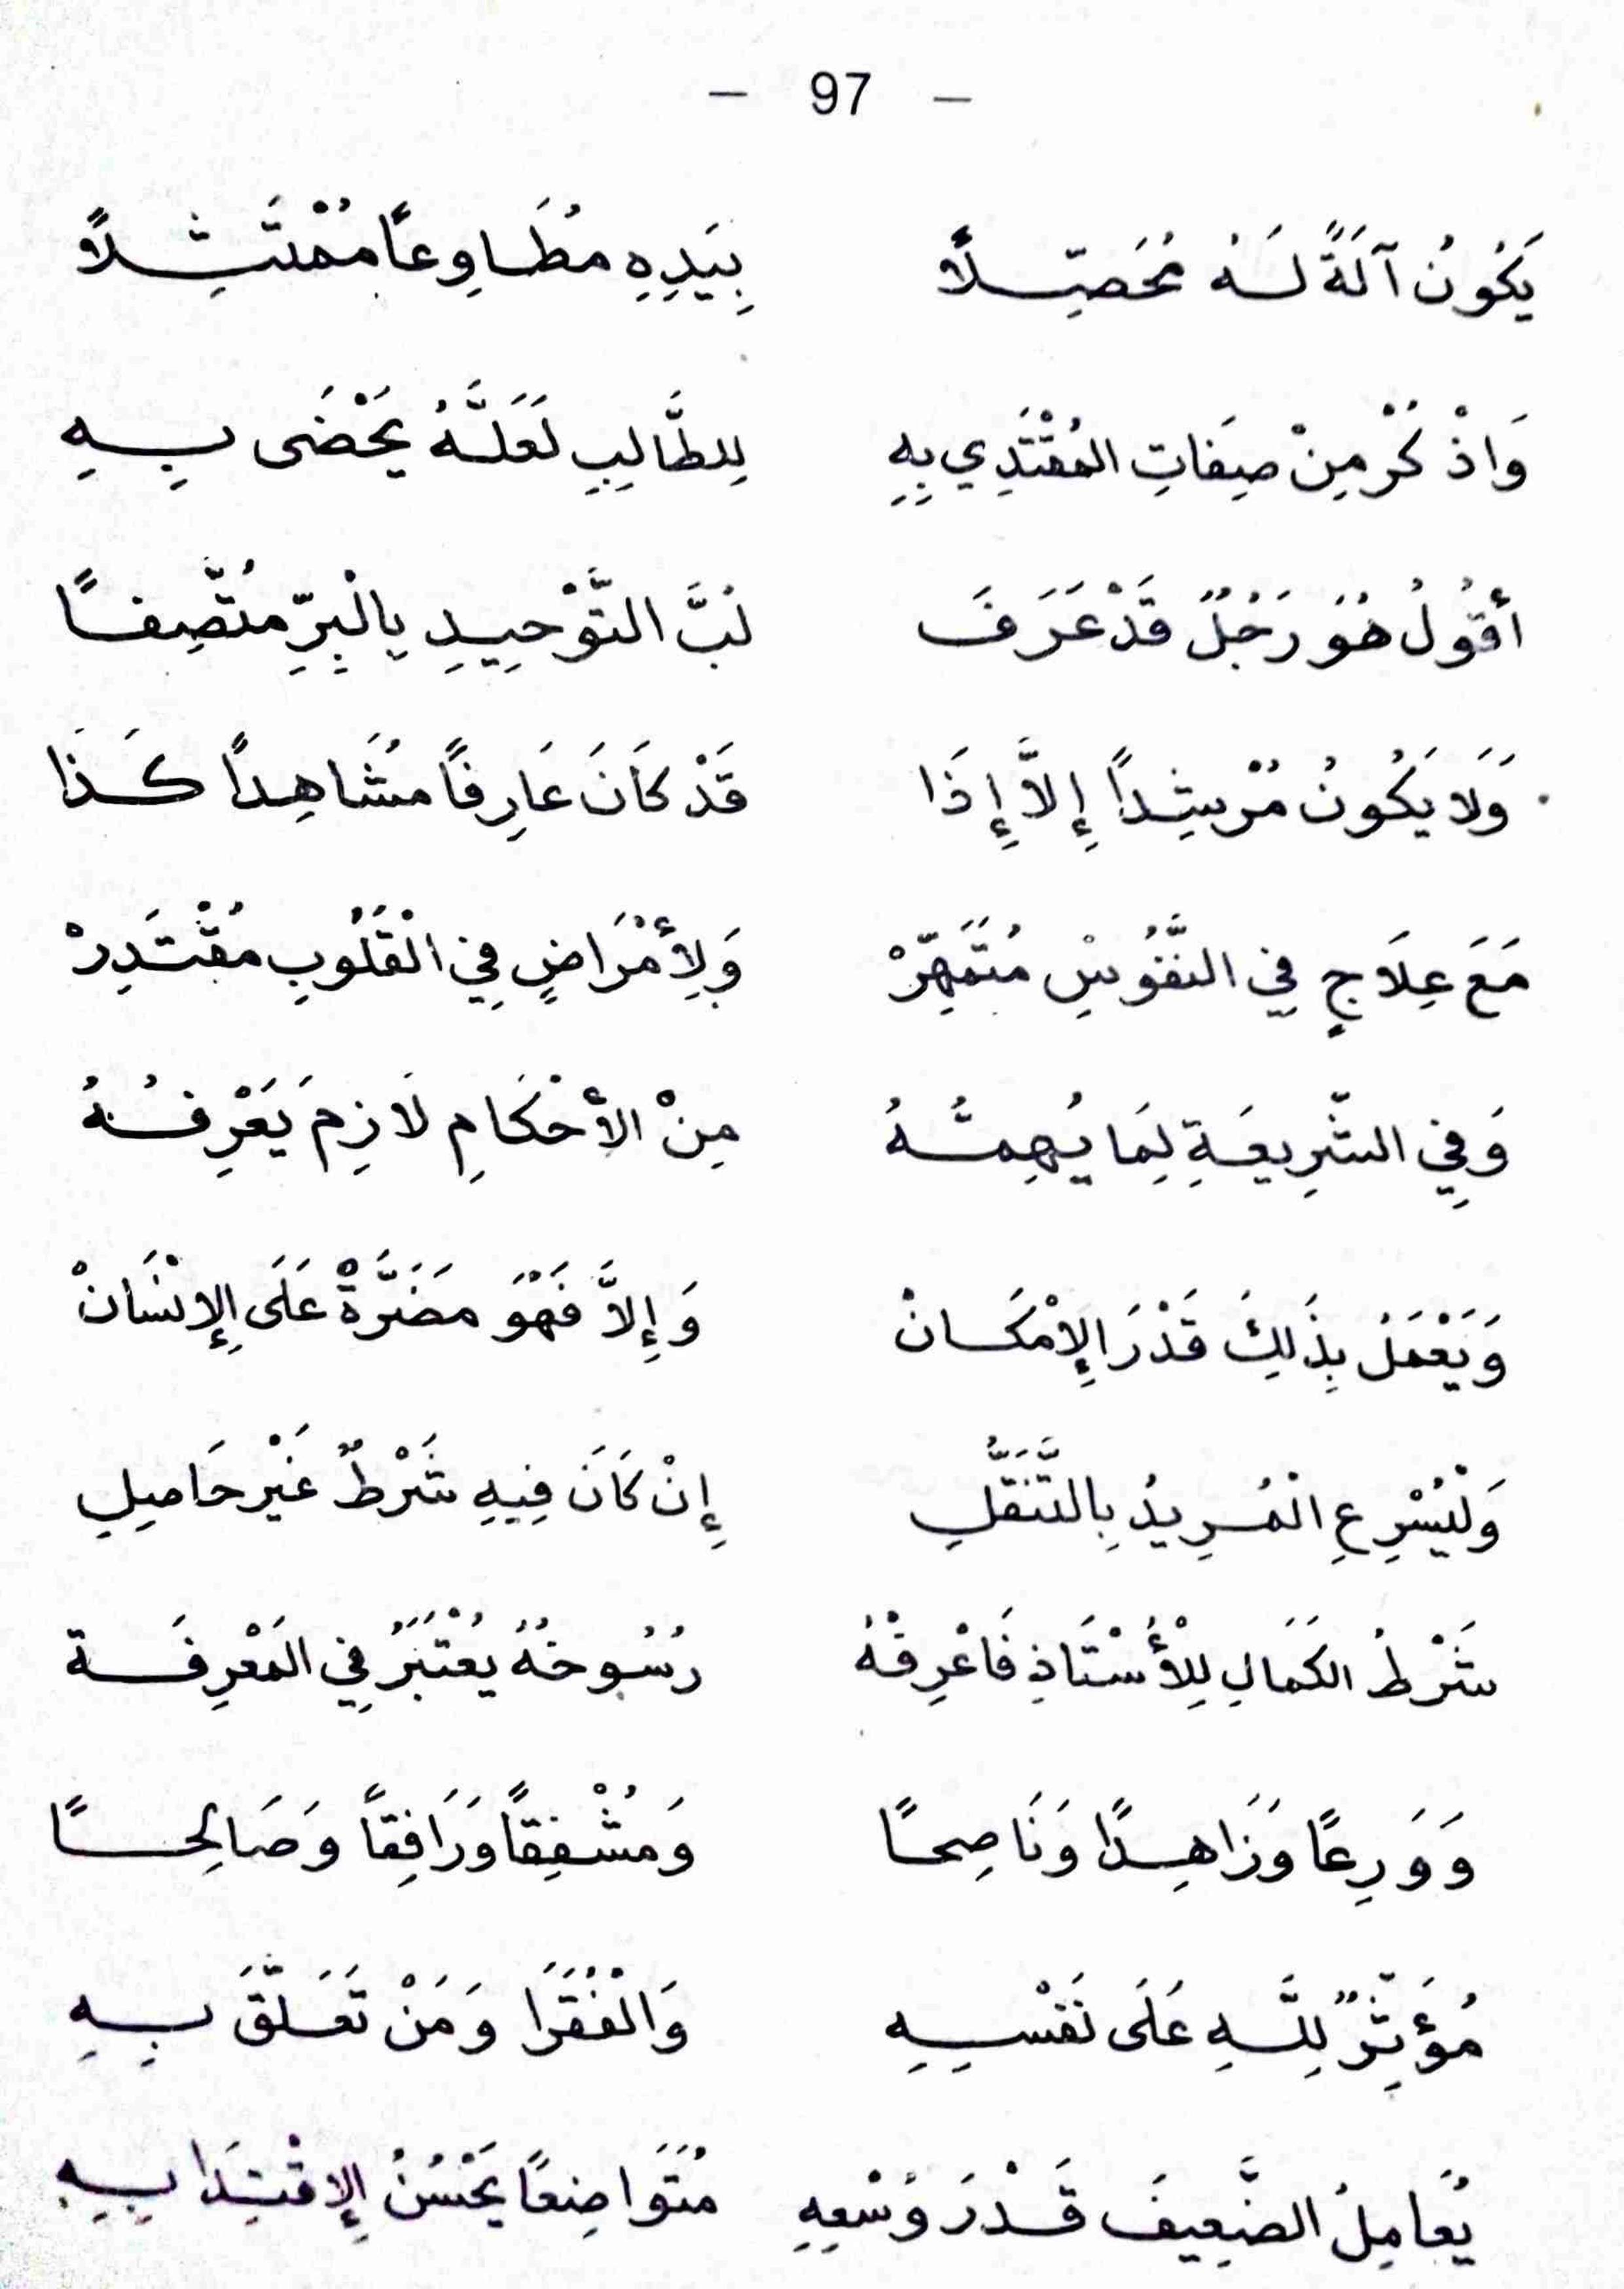 - 97 -
يَكُونُ آلَةً لَهُ مُحَصِّلاً بِيَدِهِ مُطَاوِعاً مُمْتَثِلاً
وَاذْكُرْ مِنْ صِفَاتِ المُقْتَدِي بِهِ لِلطَّالِبِ لَعَلَّهُ يَحْضَى بِهِ
أقُولُ هُوَ رَجُلٌ قَدْ عَرَفَ لُبَّ التَّوْحِيدِ بِالْبِرِّ مُتَّصِفًا
وَلَا يَكُونُ مُرْشِداً إِلاَّ إِذَا قَدْ كَانَ عَارِفاً مُشَاهِداً كَذَا
مَعَ عِلَاجٍ فِي النُّفُوسِ مُتَمَهِّرْ وَلِأَمْرَاضٍ فِي الْقُلُوبِ مُقْتَدِرْ
وَفِي الشَّرِيعَةِ لِمَا يُهِمُّهُ مِنْ الأَحْكَامِ لَازِمَ يَعْرِفُهُ
وَيَعْمَلُ بِذَلِكَ قَدْرَ الإِمْكَانْ وَإِلاَّ فَهْوَ مَضَرَّةْ عَلَى الإِنْسَانْ
وَلْيُسْرِعِ الْمُرِيدُ بِالتَّنَقُّلِ إِنْ كَانَ فِيهِ شَرْطٌ غَيْر حَاصِلِ
شَرْطُ الكَمَالِ لِلْأُسْتَاذِ فَاعْرِفْهُ رُسُوخُهُ يُعْتَبَرُ فِي المَعْرِفَة
وَوَرِعًا وَزَاهِدًا وَنَاصِحًا وَمُشْفِقاً وَرَافِقاً وَصَالِحًا
مُؤَثِّرٌ لِلَّهِ عَلَى نَفْسِهِ وَالْفُقَرَا وَمَنْ تَعَلَّقَ بِهِ
يُعَامِلُ الضَّعِيفَ قَدْرَ وُسْعِهِ مُتَوَاضِعًا يَحْسُنُ الإِقْتِدَا بِهِ